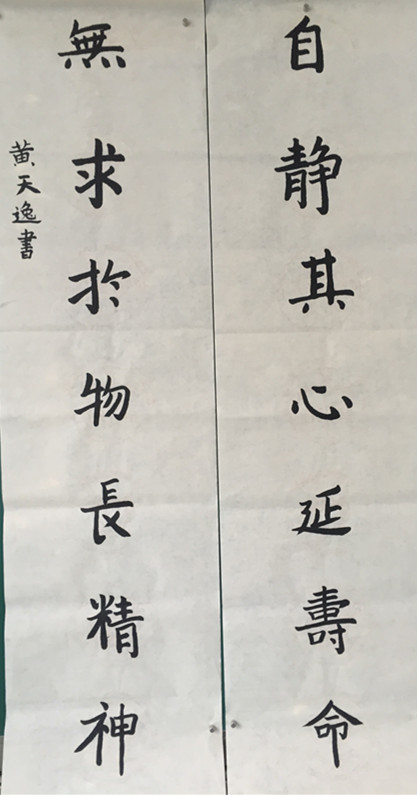 自静其心延壽命
無求於物長精神
黄天逸書